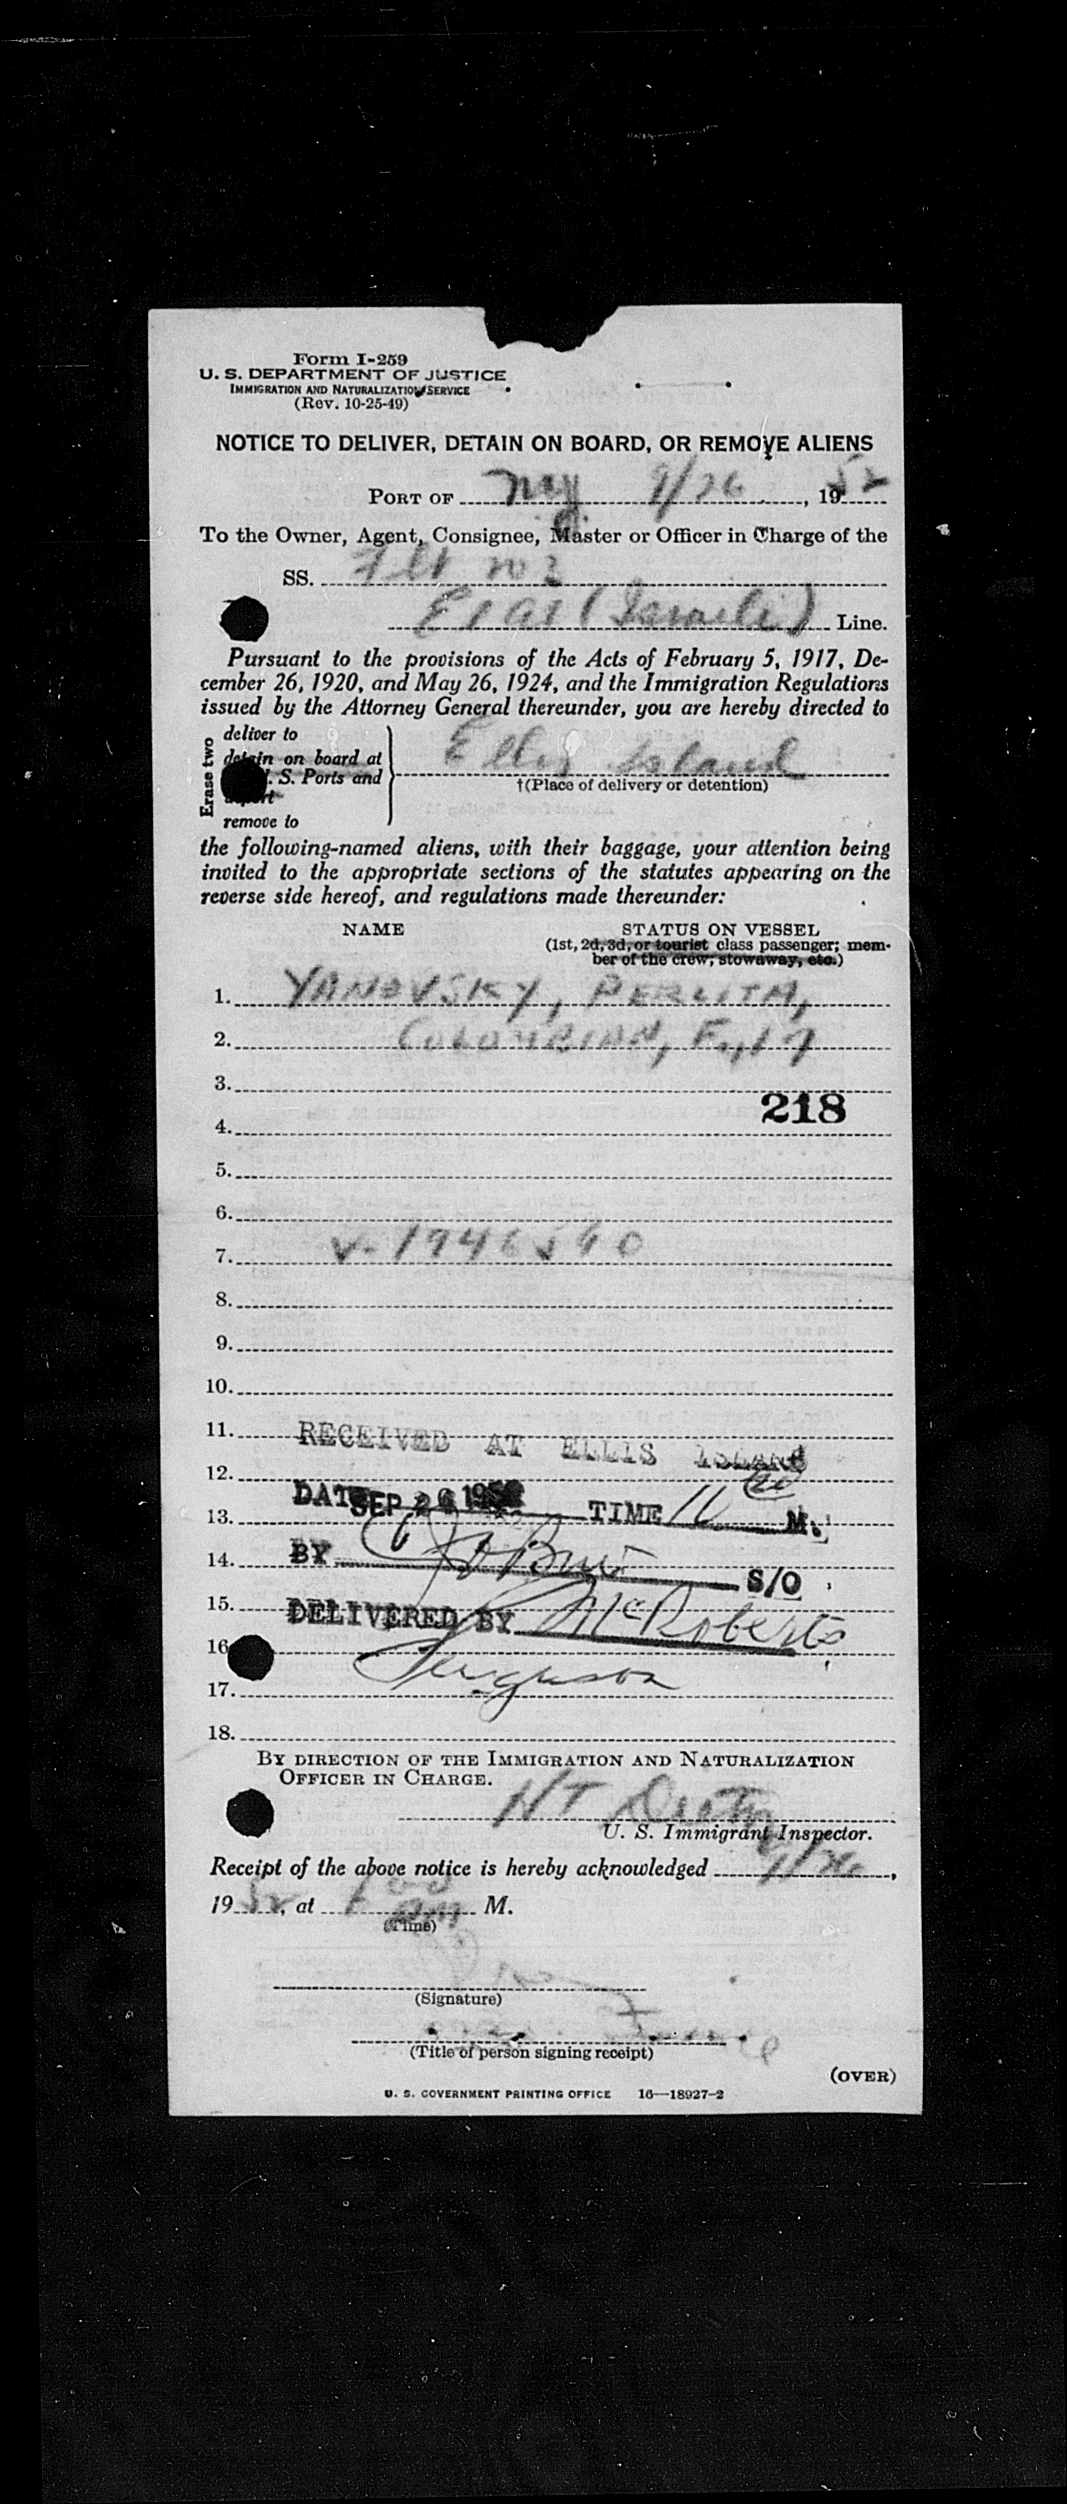 Form I-259
U. S. DEPARTMENT OF JUSTICE
IMMIGRATION AND NATURALIZATION SERVICE
(Rev. 10-25-49)
NOTICE TO DELIVER, DETAIN ON BOARD, OR REMOVE ALIENS
PORT OF NY 9/26, 1952
To the Owner, Agent, Consignee, Master or Officer in Charge of the
SS. Flt
El Al (Israeli) Line.
Pursuant to the provisions of the Acts of February 5, 1917, De-
cember 26, 1920, and May 26, 1924, and the Immigration Regulations
issued by the Attorney General thereunder, you are hereby directed to
Erase two
deliver to
detain on board at
S. Ports and
remove to
Ellis Island
†(Place of delivery or detention)
the following-named aliens, with their baggage, your attention being
invited to the appropriate sections of the statutes appearing on the
reverse side hereof, and regulations made thereunder:
NAME STATUS ON VESSEL
(1st, 2d, 3d, or tourist class passenger; mem-
ber of the crew, stowaway, etc.)
1. YANOVSKY, PERLITA,
2. COLOMBIAN, F, 17
3.
218
4.
5.
6.
7. V-1946590
8.
9.
10.
11. RECEIVED AT ELLIS ISLAND
12.
DATE SEP 26 1952 TIME M.
13.
14. BY S/O
15. DELIVERED BY McRoberts
16
Ferguson
17.
18.
BY DIRECTION OF THE IMMIGRATION AND NATURALIZATION
OFFICER IN CHARGE.
U. S. Immigrant Inspector.
Receipt of the above notice is hereby acknowledged 9/26,
1952, at M.
(Time)
(Signature)
(Title of person signing receipt)
(OVER)
U. S. GOVERNMENT PRINTING OFFICE 16—18927-2